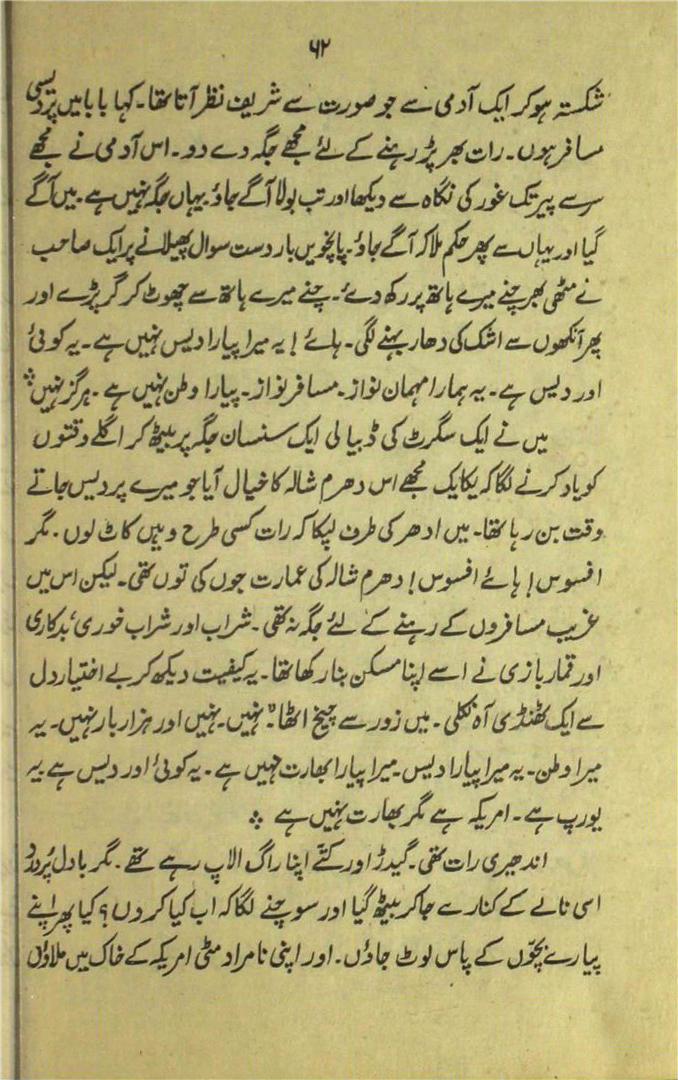 ۶۲
شکستہ ہوکر ایک آدمی سے جو صورت سے شریف نظر آتا تھا۔ کہا بابا میں پردیسی
مسافر ہوں۔ رات بھر پڑ رہنے کے لئے مجھے جگہ دے دو۔ اس آدمی نے مجھے
سر سے پیر تک غور کی نگاہ سے دیکھا اور تب بولا آگے جاؤ۔ یہاں جگہ نہیں ہے۔ میں آگے
گیا اور یہاں سے پھر حکم ملا کہ آگے جاؤ۔ پانچویں بار دست سوال پھیلانے پر ایک صاحب
نے مٹھی بھر چنے میرے ہاتھ پر رکھ دئے۔ چنے میرے ہاتھ سے چھوٹ کر گر پڑے اور
پھر آنکھوں سے اشک کی دھار بہنے لگی۔ ہائے! یہ میرا پیارا دیس نہیں ہے۔ یہ کوئی
اور دیس ہے۔ یہ ہمارا مہمان نواز۔ مسافر نواز۔ پیارا وطن نہیں ہے۔ ہرگز نہیں ؞
میں نے ایک سگرٹ کی ڈبیا لی ایک سنسان جگہ پر بیٹھ کر اگلے وقتوں
کو یاد کرنے لگا کہ یکایک مجھے اس دھرم شالہ کا خیال آیا جو میرے پردیس جاتے
وقت بن رہا تھا۔ میں ادھر کی طرف لپکا کہ رات کسی طرح وہیں کاٹ لوں۔ مگر
افسوس! ہائے افسوس! دھرم شالہ کی عمارت جوں کی توں تھی۔ لیکن اس میں
غریب مسافروں کے رہنے کے لئے جگہ نہ تھی۔ شراب اور شراب خوری، بدکاری
اور قمار بازی نے اسے اپنا مسکن بنا رکھا تھا۔ یہ کیفیت دیکھ کر بے اختیار دل
سے ایک ٹھنڈی آہ نکلی۔ میں زور سے چیخ اٹھا۔ "نہیں۔ نہیں اور ہزار بار نہیں۔ یہ
میرا وطن۔ یہ میرا پیارا دیس۔ میرا پیارا بھارت نہیں ہے۔ یہ کوئی اور دیس ہے یہ
یورپ ہے۔ امریکہ ہے مگر بھارت نہیں ہے ؞
اندھیری رات تھی۔ گیدڑ اور کتے اپنا راگ الاپ رہے تھے۔ مگر بادل پُردرد
اسی نالے کے کنارے جاکر بیٹھ گیا اور سوچنے لگا کہ اب کیا کروں؟ کیا پھر اپنے
پیارے بچّوں کے پاس لوٹ جاؤں۔ اور اپنی نامراد مٹی امریکہ کے خاک میں ملاؤں